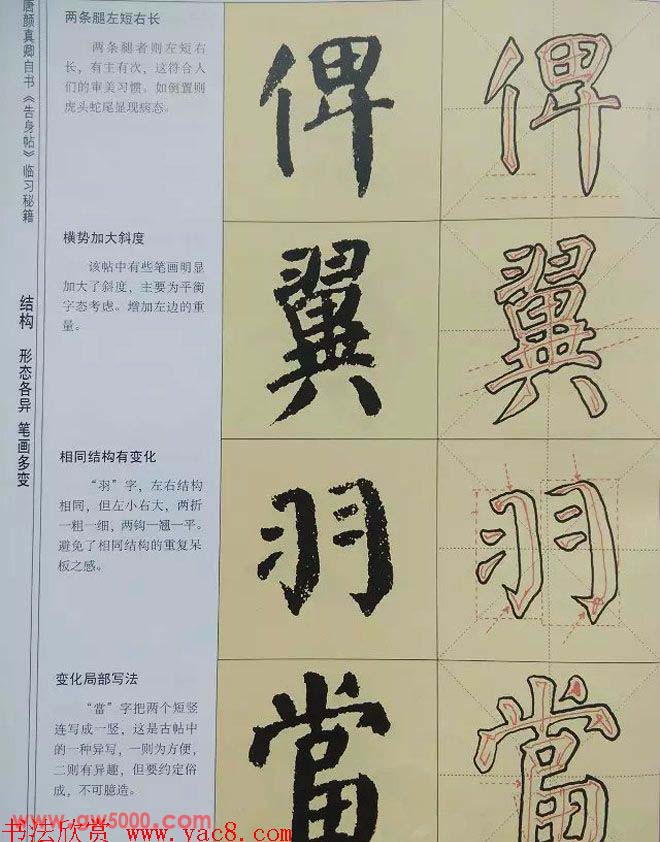 唐颜真卿自书《告身帖》临习秘籍
结构 形态各异 笔画多变
两条腿左短右长
两条腿者则左短右
长，有主有次，这符合人
们的审美习惯。如倒置则
虎头蛇尾显现病态。
俾
横势加大斜度
该帖中有些笔画明显
加大了斜度，主要为平衡
字态考虑。增加左边的重
量。
翼
相同结构有变化
“羽”字，左右结构
相同，但左小右大，两折
一粗一细，两钩一翘一平。
避免了相同结构的重复呆
板之感。
羽
变化局部写法
“當”字把两个短竖
连写成一竖，这是古帖中
的一种异写，一则为方便，
二则有异趣，但要约定俗
成，不可臆造。
當
www.gw5000.com
书法欣赏 www.yac8.com